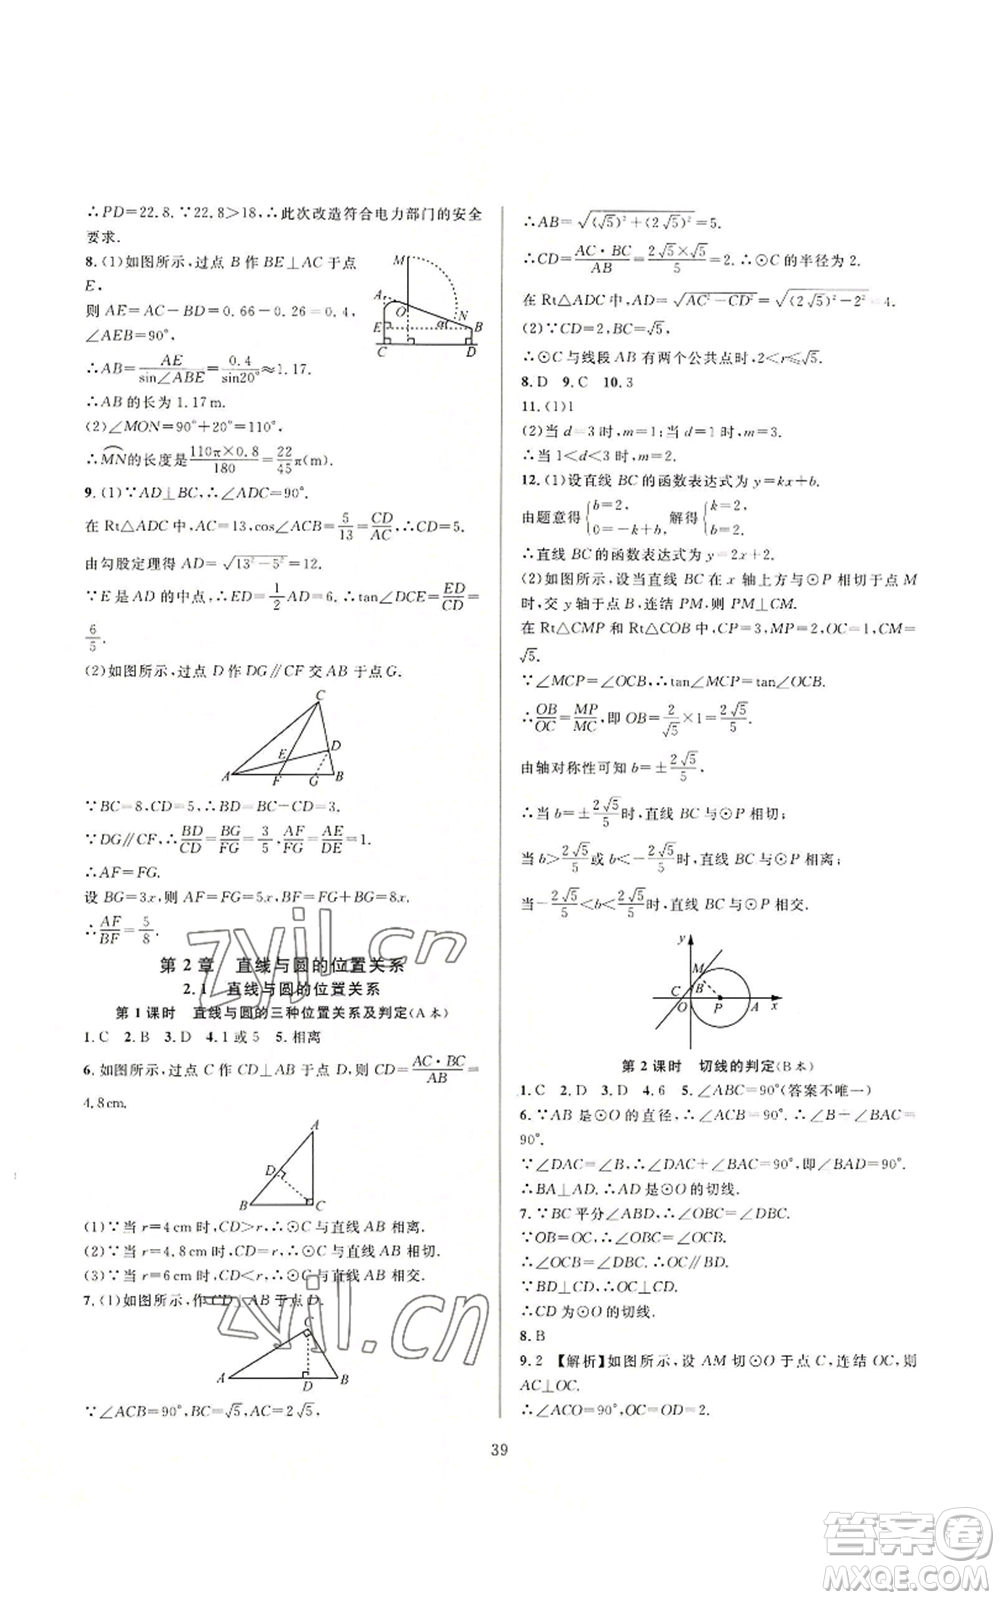 ∴PD=22.8.∵22.8>18,∴此次改造符合电力部门的安全
要求.
8.(1)如图所示,过点 B 作 BE⊥AC 于点
E,
则 AE=AC-BD=0.66-0.26=0.4,
∠AEB=90°,
∴AB=AE/sin∠ABE=0.4/sin20°≈1.17.
∴AB 的长为 1.17 m.
(2)∠MON=90°+20°=110°,
∴MN的长度是110π×0.8/180=22/45π(m).
9.(1)∵AD⊥BC,∴∠ADC=90°.
在 Rt△ADC 中,AC=13,cos∠ACB=5/13=CD/AC,∴CD=5.
由勾股定理得 AD=√(13²-5²)=12.
∵E 是 AD 的中点,∴ED=1/2AD=6.∴tan∠DCE=ED/CD=
6/5.
(2)如图所示,过点 D 作 DG∥CF 交 AB 于点 G.
C
E D
A F G B
∵BC=8,CD=5,∴BD=BC-CD=3.
∵DG∥CF,∴BD/CD=BG/FG=3/5,AF/FG=AE/DE=1.
∴AF=FG.
设 BG=3x,则 AF=FG=5x,BF=FG+BG=8x.
∴AF/BF=5/8.
第 2 章 直线与圆的位置关系
2.1 直线与圆的位置关系
第 1 课时 直线与圆的三种位置关系及判定(A 本)
1.C 2.B 3.D 4.1 或 5 5.相离
6.如图所示,过点 C 作 CD⊥AB 于点 D,则 CD=AC·BC/AB=
4.8cm.
A
D
B C
(1)∵当 r=4 cm 时,CD>r,∴⊙C 与直线 AB 相离.
(2)∵当 r=4.8 cm 时,CD=r,∴⊙C 与直线 AB 相切.
(3)∵当 r=6 cm 时,CD<r,∴⊙C 与直线 AB 相交.
7.(1)如图所示,作 CD⊥AB 于点 D.
C
A D B
∵∠ACB=90°,BC=√5,AC=2√5,
M
A O N
E α B
C D
∴AB=√((√5)²+(2√5)²)=5.
∴CD=AC·BC/AB=2√5×√5/5=2.∴⊙C 的半径为 2.
在 Rt△ADC 中,AD=√(AC²-CD²)=√((2√5)²-2²)=4.
(2)∵CD=2,BC=√5,
∴⊙C 与线段 AB 有两个公共点时,2<r≤√5.
8.D 9.C 10.3
11.(1)1
(2)当 d=3 时,m=1;当 d=1 时,m=3.
∴当 1<d<3 时,m=2.
12.(1)设直线 BC 的函数表达式为 y=kx+b.
由题意得{b=2, 0=-k+b, 解得{k=2, b=2.
∴直线 BC 的函数表达式为 y=2x+2.
(2)如图所示,设当直线 BC 在 x 轴上方与⊙P 相切于点 M
时,交 y 轴于点 B,连结 PM,则 PM⊥CM.
在 Rt△CMP 和 Rt△COB 中,CP=3,MP=2,OC=1,CM=
√5.
∵∠MCP=∠OCB,∴tan∠MCP=tan∠OCB.
∴OB/OC=MP/MC,即 OB=2/√5×1=2√5/5.
由轴对称性可知 b=±2√5/5.
∴当 b=±2√5/5时,直线 BC 与⊙P 相切;
当 b>2√5/5或 b<-2√5/5时,直线 BC 与⊙P 相离;
当-2√5/5<b<2√5/5时,直线 BC 与⊙P 相交.
y
M
C B
O P A x
第 2 课时 切线的判定(B 本)
1.C 2.D 3.D 4.6 5.∠ABC=90°(答案不唯一)
6.∵AB 是⊙O 的直径,∴∠ACB=90°.∴∠B+∠BAC=
90°.
∵∠DAC=∠B,∴∠DAC+∠BAC=90°,即∠BAD=90°.
∴BA⊥AD.∴AD 是⊙O 的切线.
7.∵BC 平分∠ABD,∴∠OBC=∠DBC.
∵OB=OC,∴∠OBC=∠OCB.
∴∠OCB=∠DBC.∴OC∥BD.
∵BD⊥CD,∴OC⊥CD.
∴CD 为⊙O 的切线.
8.B
9.2 【解析】如图所示,设 AM 切⊙O 于点 C,连结 OC,则
AC⊥OC.
∴∠ACO=90°,OC=OD=2.
39
zyjl.cn
zyjl.cn
答案卷
MXQE.COM